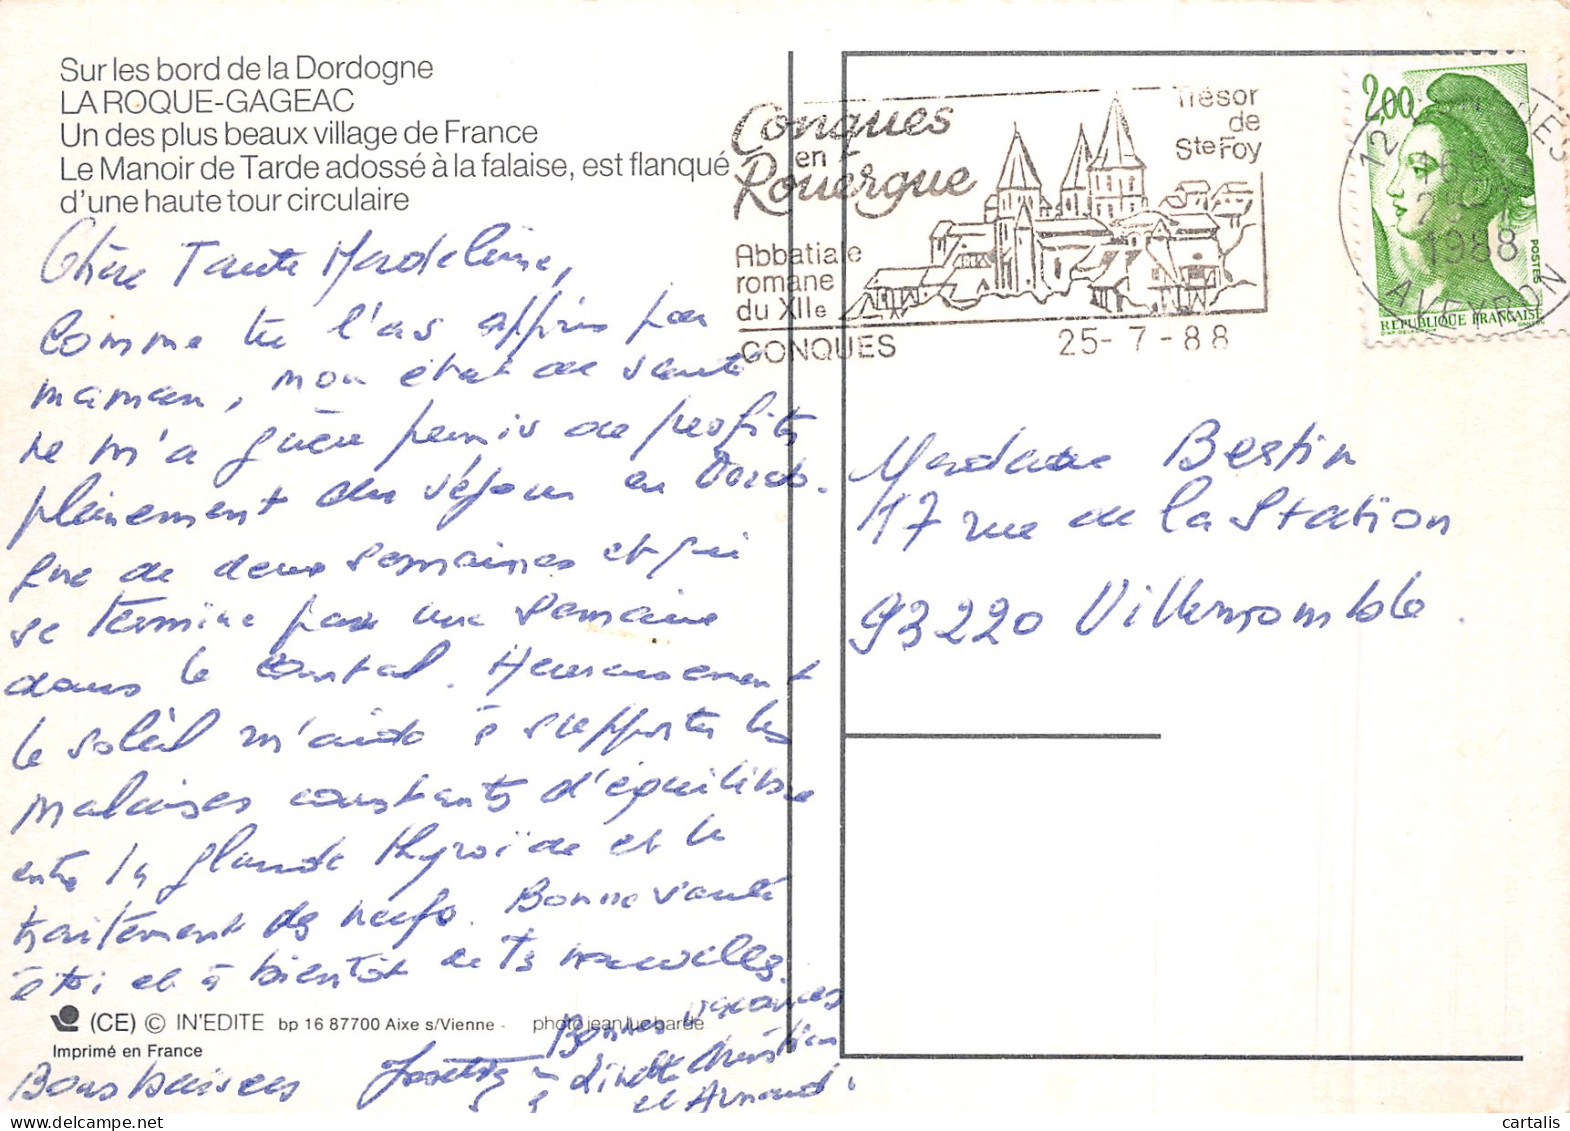 Sur les bord de la Dordogne
LA ROQUE-GAGEAC
Un des plus beaux village de France
Le Manoir de Tarde adossé à la falaise, est flanqué
d'une haute tour circulaire
Chère Tante Madeleine,
Comme tu l'as appris par
maman, mon état de santé
ne m'a guère permis de profiter
pleinement du séjour en Dordo-
gne de deux semaines et qui
se termine par une semaine
dans le Cantal. Heureusement
le soleil m'aide à supporter les
malaises constants d'équilibre
entre la glande thyroïde et le
traitement des nerfs. Bonne santé
à toi et à bientôt de tes nouvelles.
Bons baisers Josette
Bonnes vacances
à Linette Christian
et Arnaud.
(CE) © IN'EDITE bp 16 87700 Aixe s/Vienne - photo jean luc barde
Imprimé en France
Conques
en
Rouergue
Trésor
de
Ste Foy
Abbatiale
romane
du XIIe
CONQUES
25-7-88
2,00
POSTES
REPUBLIQUE FRANÇAISE
12
1988
AVEYRON
Madame Bestin
17 rue de la Station
93220 Villemomble.
cartalis